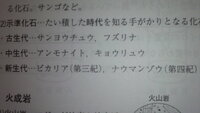 る化石。サンゴなど。
⑵示準化石…たい積した時代を知る手がかりとなる化石
古生代…サンヨウチュウ、フズリナ
中生代…アンモナイト、キョウリュウ
新生代…ビカリア(第三紀)、ナウマンゾウ(第四紀)
火成岩
火山岩